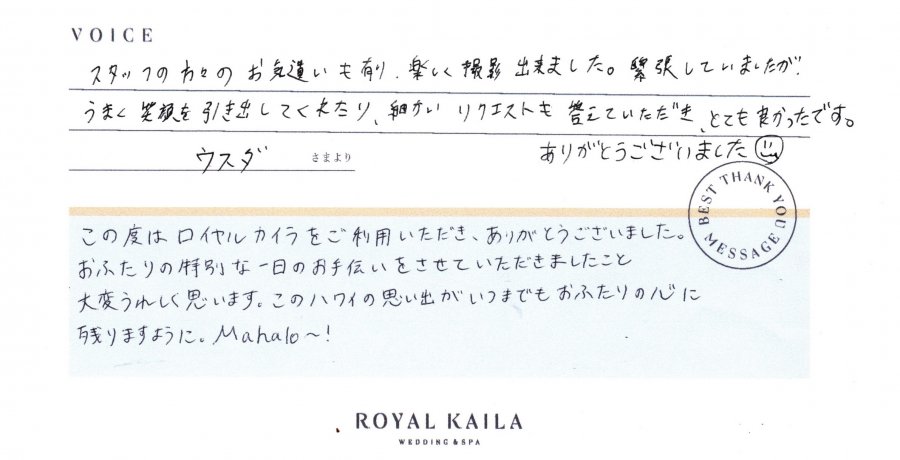 VOICE
スタッフの方々のお気遣いも有り、楽しく撮影出来ました。緊張していましたが、
うまく笑顔を引き出してくれたり、細かいリクエストも答えていただき、とても良かったです。
ウスダ さまより
ありがとうございました
BEST THANK YOU MESSAGE
この度はロイヤルカイラをご利用いただき、ありがとうございました。
おふたりの特別な一日のお手伝いをさせていただきましたこと
大変うれしく思います。このハワイの思い出がいつまでもおふたりの心に
残りますように。Mahalo〜!
ROYAL KAILA
WEDDING & SPA